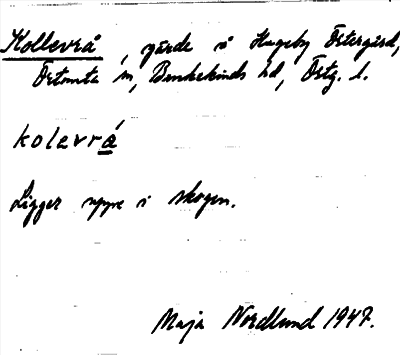 Kollevrå, gärde i Hageby Östergård,
Örtomta sn, Bankekinds hd, Östg. l.
kolevrá
Ligger uppe i skogen.
Maja Nordlund 1947.